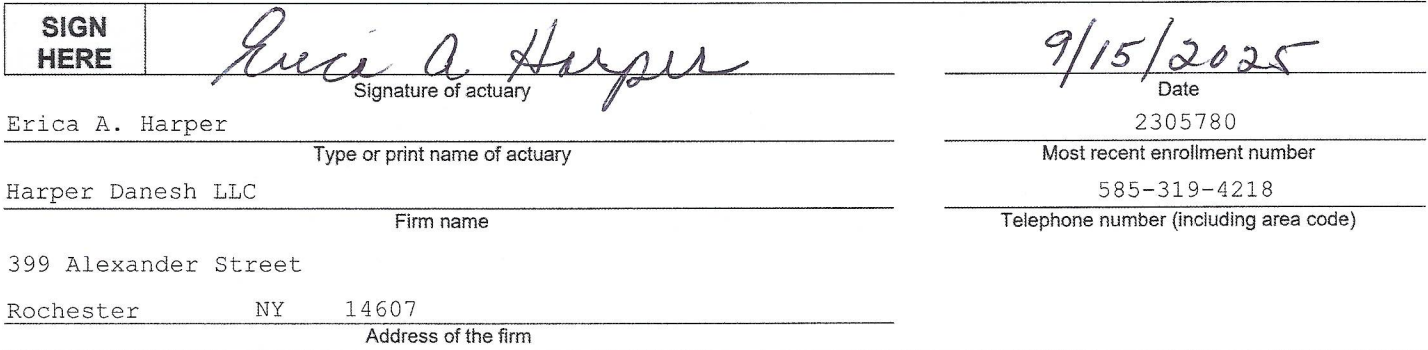 SIGN
HERE
Erica A Harper
9/15/2025
Signature of actuary
Date
Erica A. Harper
2305780
Type or print name of actuary
Most recent enrollment number
Harper Danesh LLC
585-319-4218
Firm name
Telephone number (including area code)
399 Alexander Street
Rochester NY 14607
Address of the firm